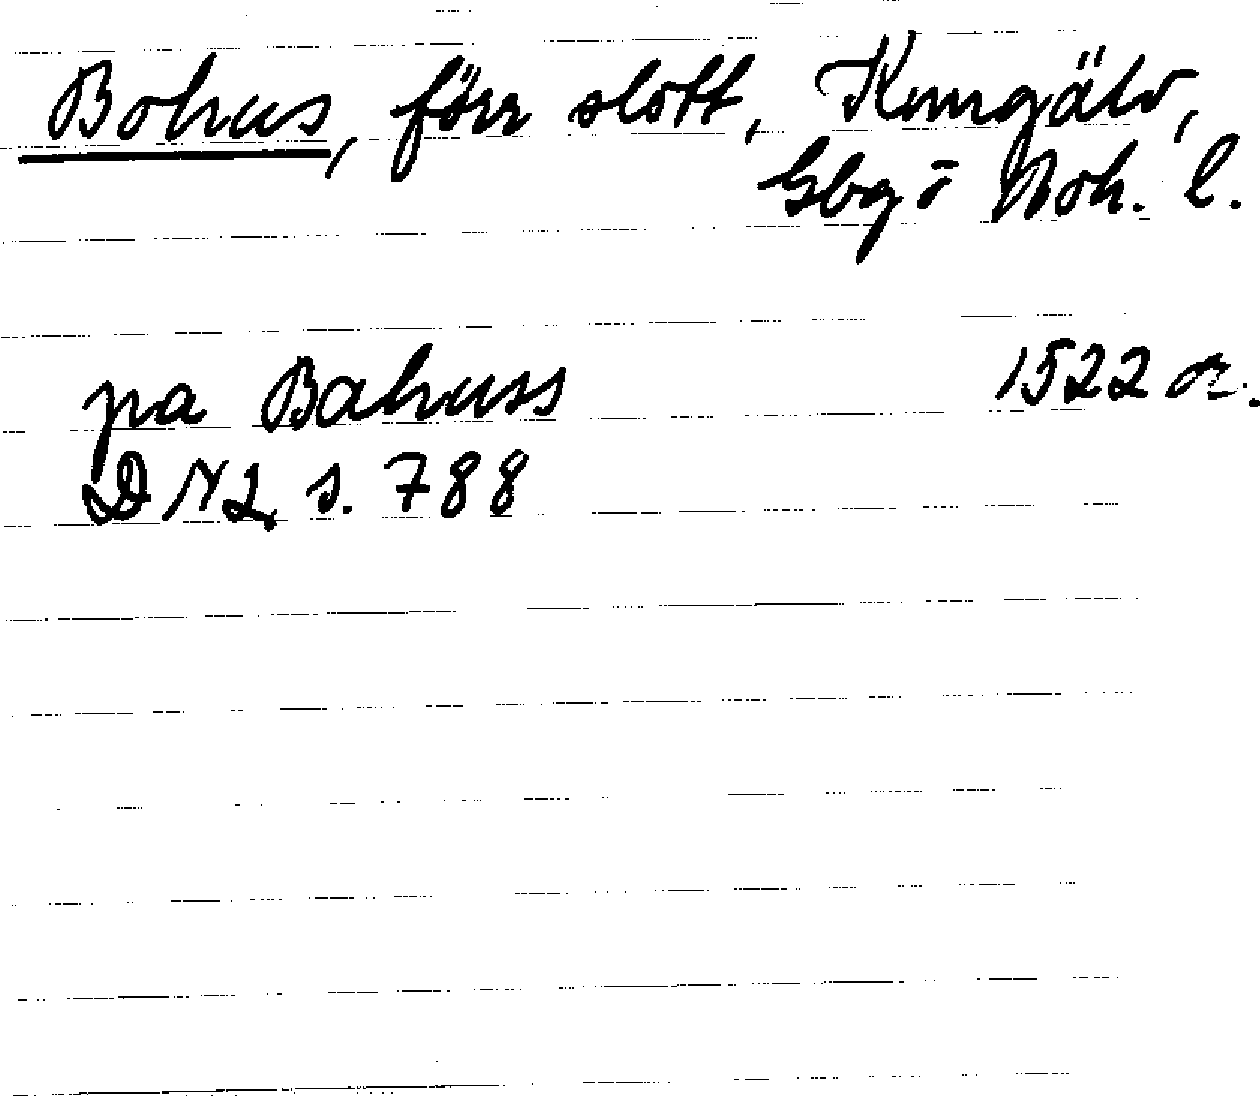 Bohus, förr slott, Kungälv,
Gbg o Boh. l.
pa Bahuss 1522 or.
DN2, s. 788